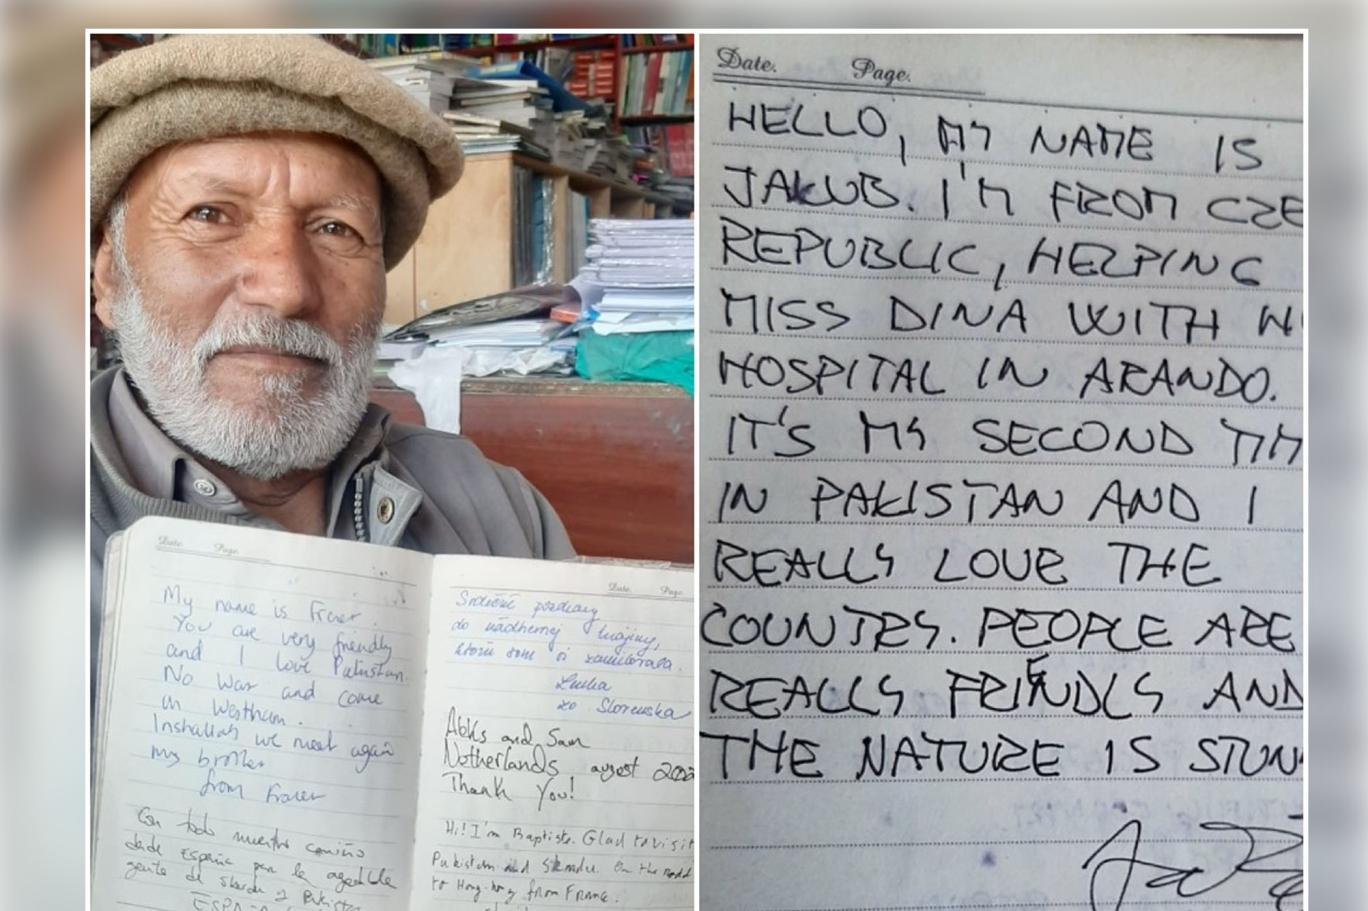 Date. Page.
My name is Fraser.
You are very friendly
and I love Pakistan.
No War and come
in Westham.
Inshallah we meet again
my brother
from Fraser
Con todo nuestro cariño
desde España por la agradable
gente de Skardu y Pakista
ESPAÑ
Date. Page.
Srdečné pozdravy
do nádhernej krajiny,
ktorú som si zamilovala.
Lenka
zo Slovenska
Aleks and Sam
Netherlands august 202
Thank you!
Hi! I'm Baptiste. Glad to visit
Pakistan and Skardu. On the road
to Hong-Kong from France.
Date. Page.
HELLO, MY NAME IS
JAKUB. I'M FROM CZE
REPUBLIC, HELPING
MISS DINA WITH H
HOSPITAL IN ARANDO.
IT'S MY SECOND TIM
IN PAKISTAN AND I
REALLY LOVE THE
COUNTRY. PEOPLE ARE
REALLY FRIENDLY AND
THE NATURE IS STUN